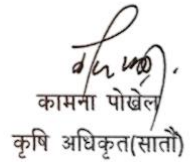 कामना पोखेल
कृषि अधिकृत(सातौं)